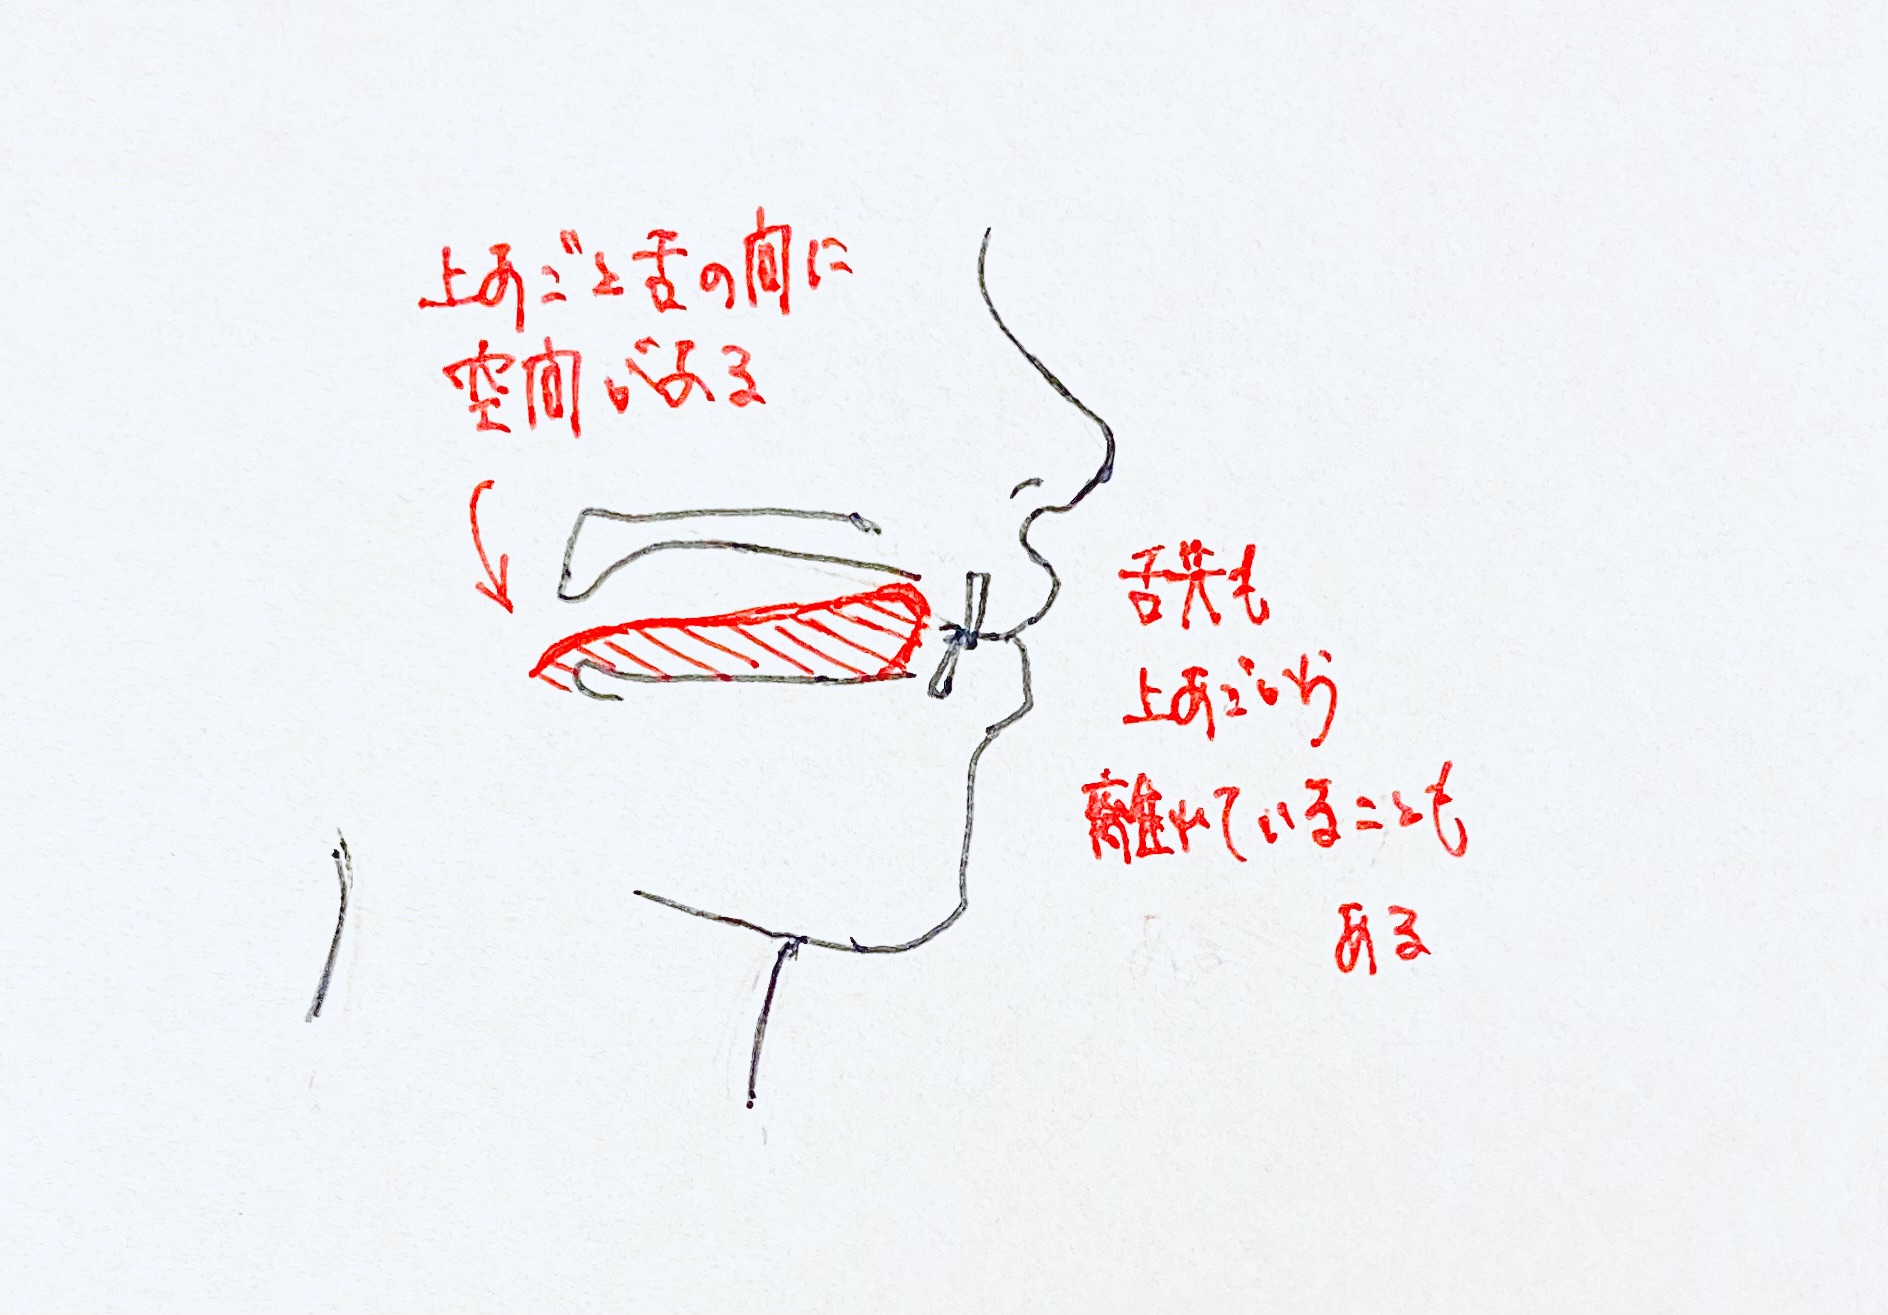 上あごと舌の間に
空間がある
舌尖も
上あごから
離れていることも
ある